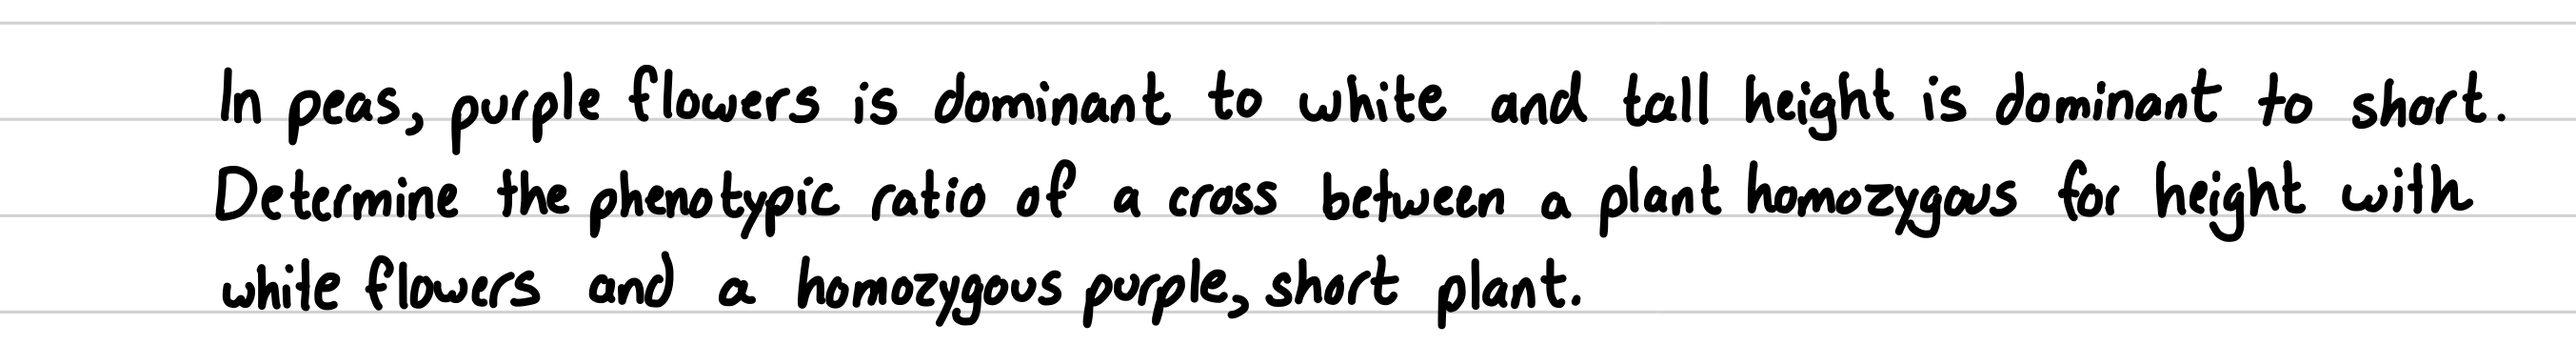 In peas, purple flowers is dominant to white and tall height is dominant to short.
Determine the phenotypic ratio of a cross between a plant homozygous for height with
white flowers and a homozygous purple, short plant.